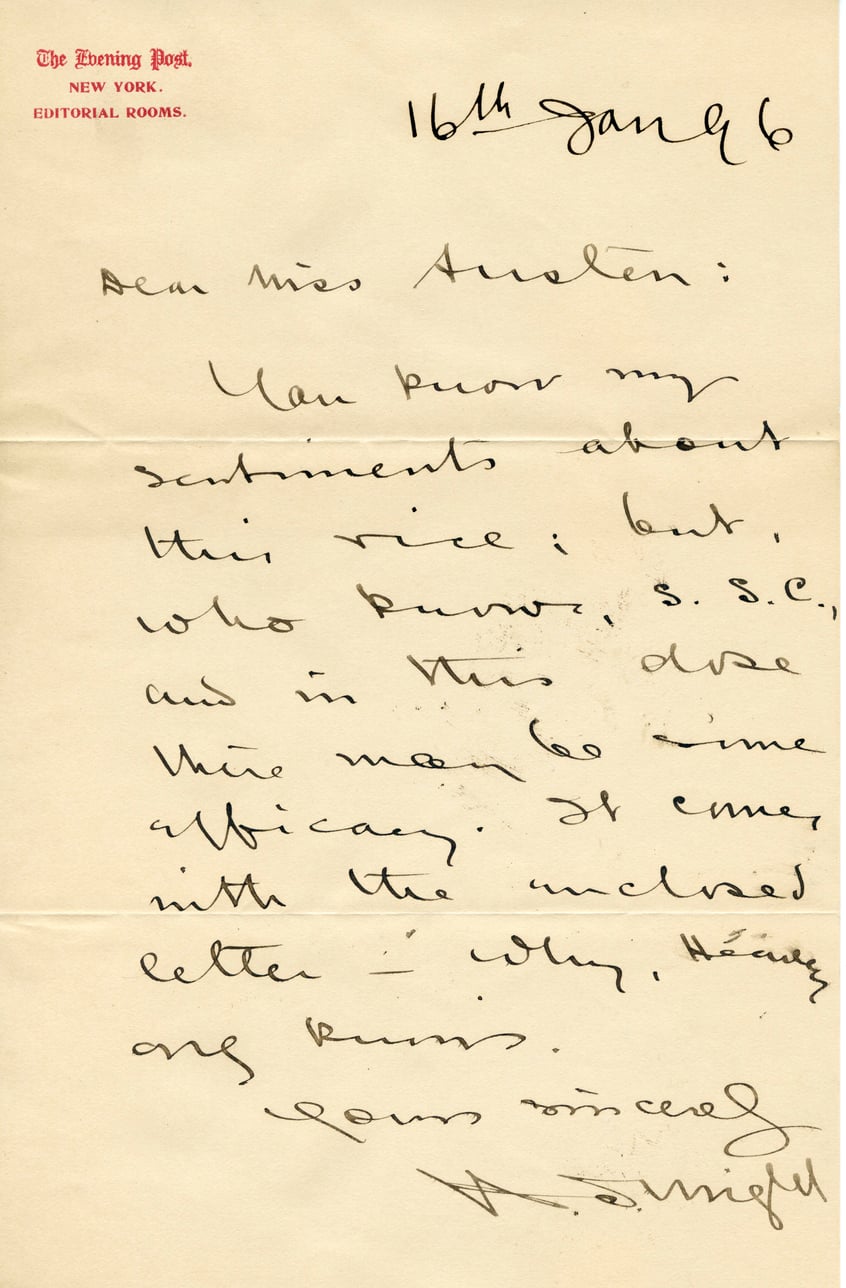 The Evening Post.
NEW YORK.
EDITORIAL ROOMS.
16th Jan 96
Dear Miss Austen:
You know my
sentiments about
this vice; but,
who knows, S. S. C.,
and in this dose
there may be some
efficacy. It comes
with the enclosed
letter – why, Heaven
only knows.
Yours sincerely
H. S. Wright